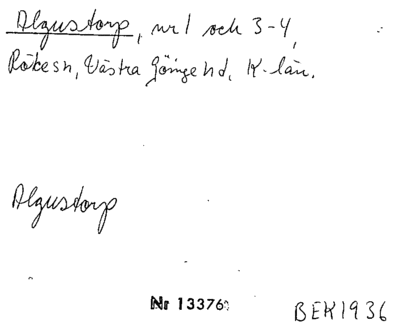 Algustorp, nr 1 och 3-4,
Röke sn, Västra Göinge hd, K-län.
Algustorp
Nr 13376
BEK1936